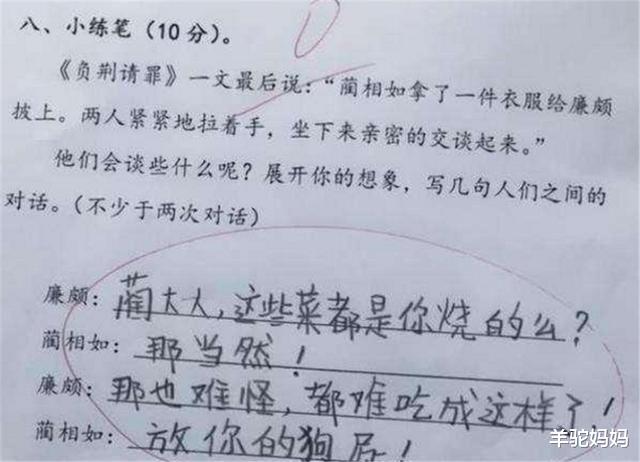 八、小练笔（10分）。
《负荆请罪》一文最后说：“蔺相如拿了一件衣服给廉颇
披上。两人紧紧地拉着手，坐下来亲密的交谈起来。”
他们会谈些什么呢？展开你的想象，写几句人们之间的
对话。（不少于两次对话）
廉颇：蔺大人，这些菜都是你烧的么？
蔺相如：那当然！
廉颇：那也难怪，都难吃成这样了！
蔺相如：放你的狗屁！
羊驼妈妈